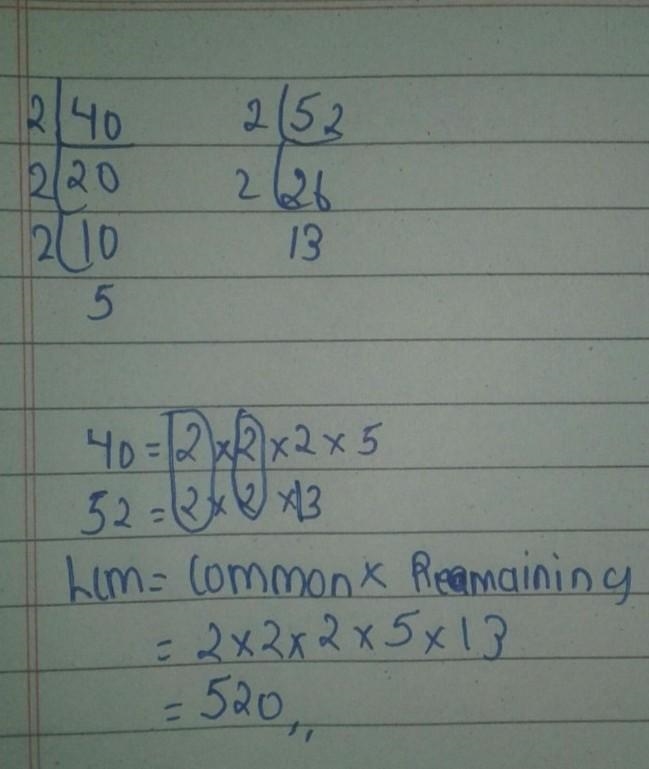 2 40 2 52
2 20 2 26
2 10 13
5
40 = 2 × 2 × 2 × 5
52 = 2 × 2 × 13
Lcm = Common × Remaining
= 2 × 2 × 2 × 5 × 13
= 520,,